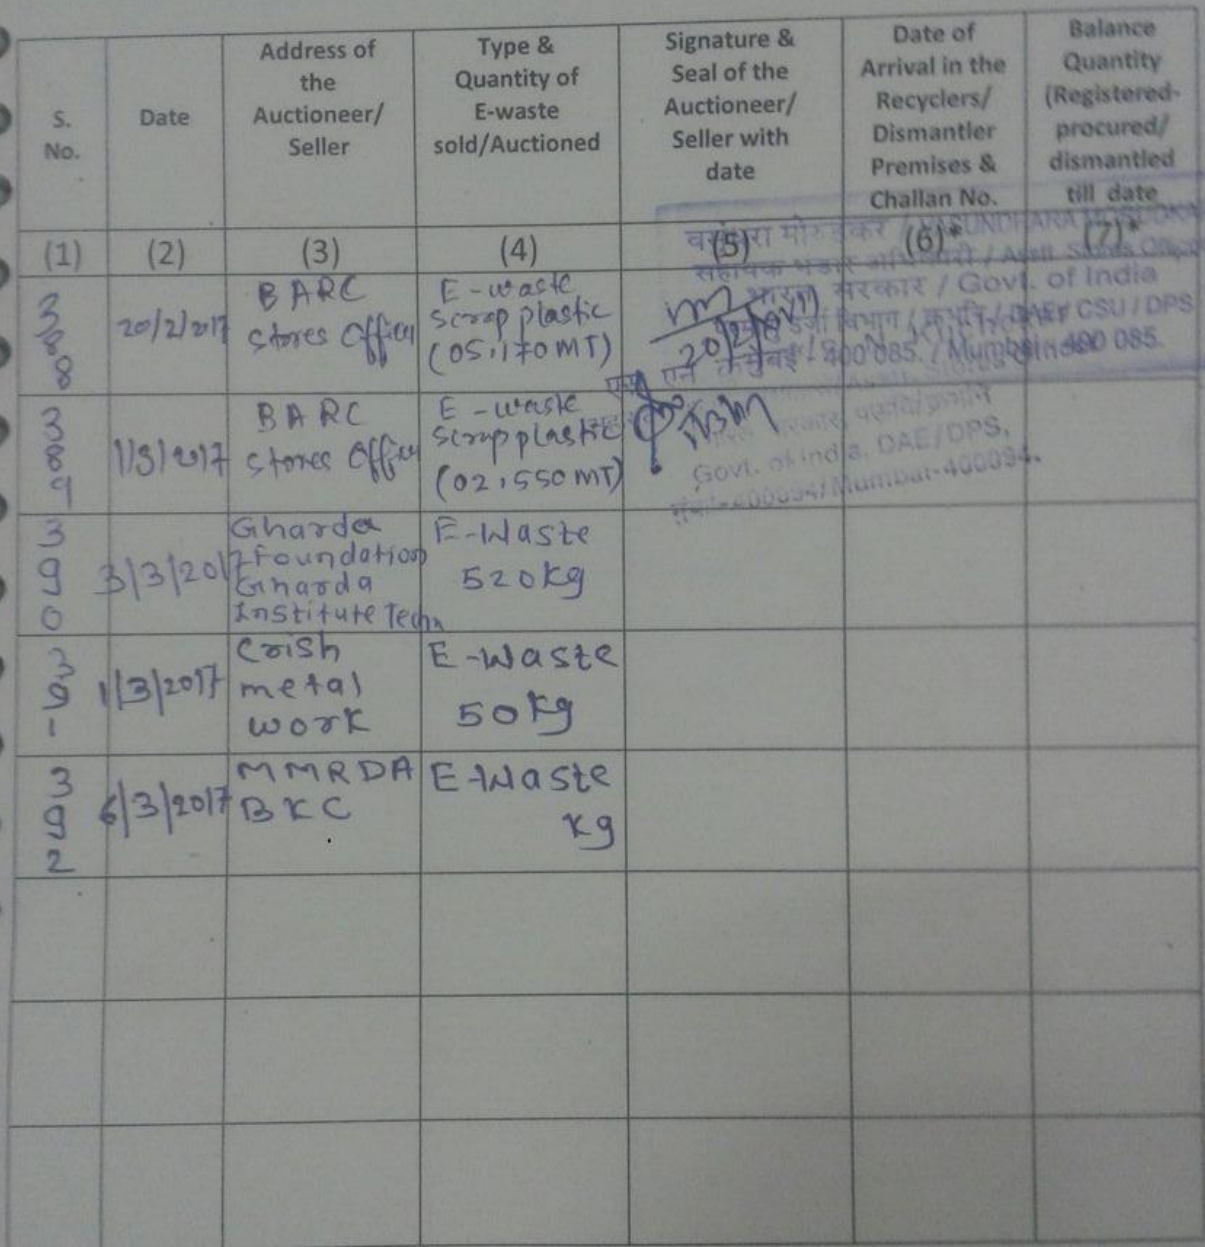 S. No.
Date
Address of the Auctioneer/ Seller
Type & Quantity of E-waste sold/Auctioned
Signature & Seal of the Auctioneer/ Seller with date
Date of Arrival in the Recyclers/ Dismantler Premises & Challan No.
Balance Quantity (Registered- procured/ dismantled till date
(1) (2) (3) (4) (5) (6)* (7)*
388
20/2/2017
BARC
Stores Office
E-waste
Scrap plastic
(05.170MT)
20/2/2017
सरकार / Govt. of India
CSU / DPS
400 085. / Mumbai 400 085.
389
1/3/2017
BARC
Stores Office
E-waste
Scrap plastic
(02.550MT)
Govt. of India, DAE/DPS,
Mumbai-400094.
390
3/3/2017
Gharda
Foundation
Gharda
Institute Techn
E-Waste
520kg
391
1/3/2017
Crish
metal
work
E-Waste
50kg
392
6/3/2017
MMRDA
BKC
E-Waste
kg